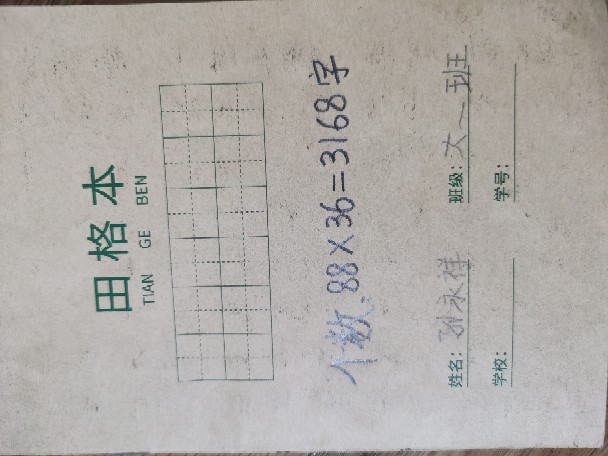 田格本
TIAN GE BEN
个数:88×36=3168字
姓名:孙永祥 班级:大一班
学校: 学号: